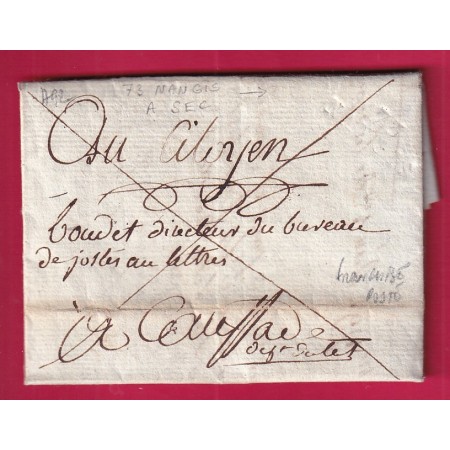 73 NANGIS
A SEC
Au Citoyen
boudet directeur du bureau
de postes au lettres
franchise
poste
à Caussade
dept du lot